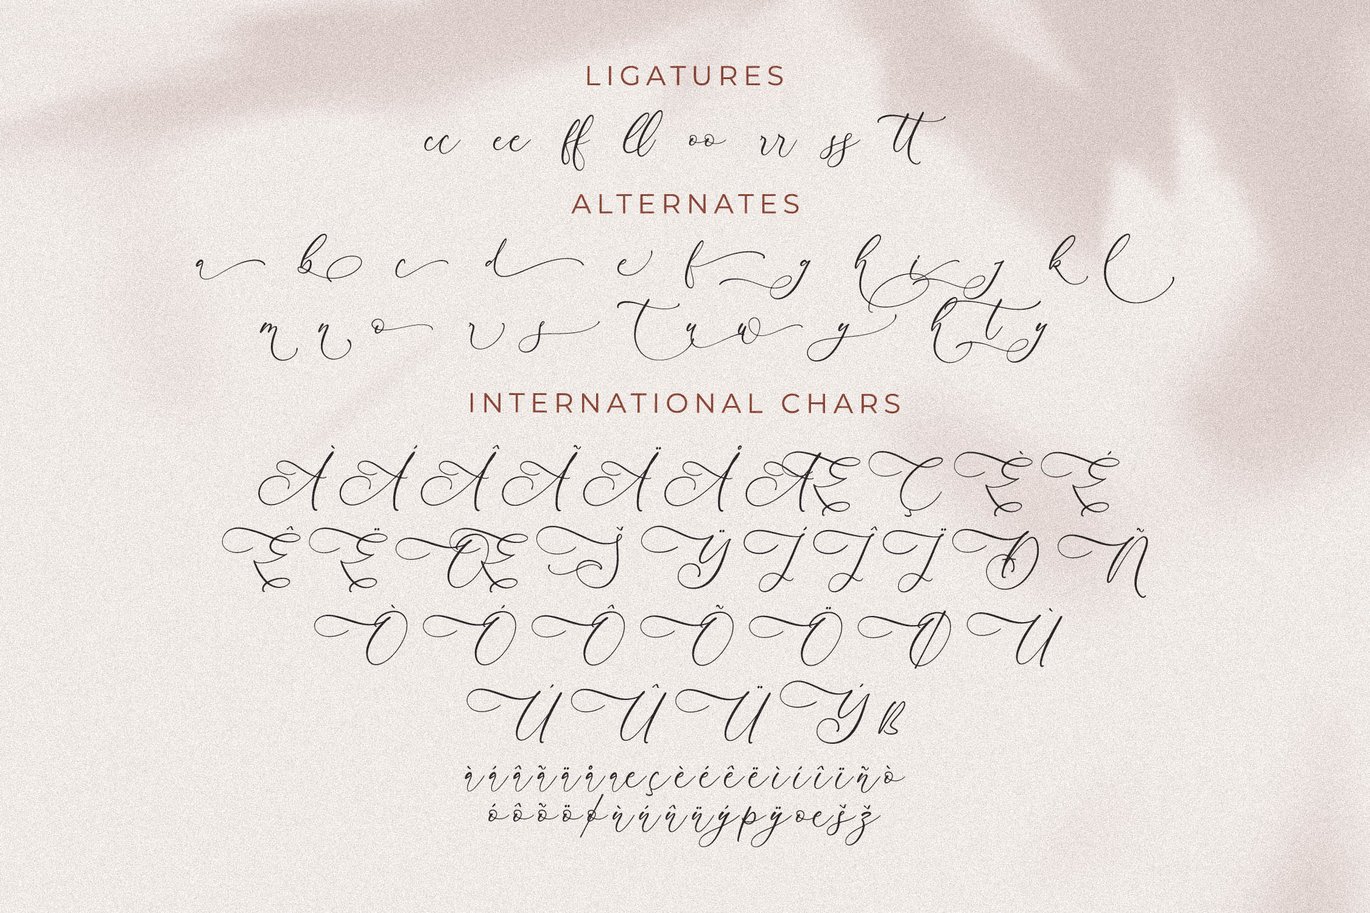 LIGATURES
cc ee ff ll oo rr ss tt
ALTERNATES
a b c d e f g h i j k l
m n o r s t u w y h t y
INTERNATIONAL CHARS
À Á Â Ã Ä Å Æ Ç È É
Ê Ë Œ Š Ÿ Í Î Ï Ð Ñ
Ò Ó Ô Õ Ö Ø Ù
Ú Û Ü Ý ß
à á â ã ä å æ ç è é ê ë ì í î ï ñ ò
ó ô õ ö ø ù ú û ü ý þ ÿ œ š ž